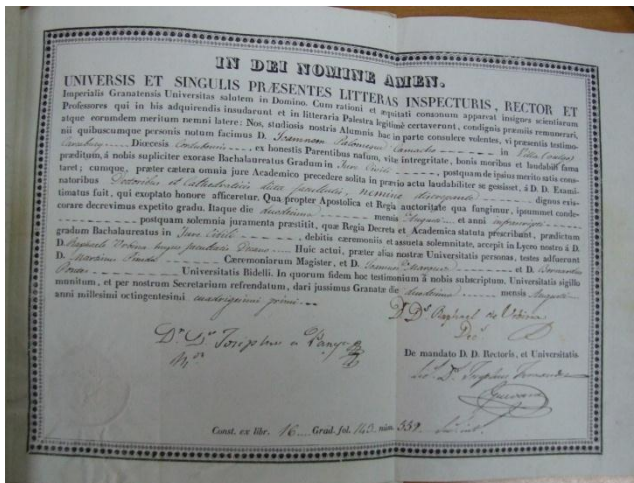 IN DEI NOMINE AMEN.
UNIVERSIS ET SINGULIS PRÆSENTES LITTERAS INSPECTURIS, RECTOR ET
Imperialis Granatensis Universitas salutem in Domino. Cum rationi et æquitati consonum appareat insignes scientiarum
Professores qui in his adquirendis insudarunt et in litteraria Palestra legitimè certaverunt, condignis præmiis remunerari,
atque eorumdem meritum nemni latere: Nos, studiosis nostris Alumnis hac in parte consulere volentes, vi præsentis testimo-
nii quibuscumque personis notum facimus D. Palomeque Camacho in Villa
Diœcesis Cordubensis, ex honestis Parentibus natum, vitæ integritate, bonis moribus et laudabili fama
præditum, à nobis supliciter exorasse Bachalaureatus Gradum in Jure Civili postquam de ipsius merito satis cons-
taret; cumque, præter cætera omnia jure Academico precedere solita in prævio actu laudabiliter se gessisset, à D. D. Exami-
natoribus Doctoribus et Cathedraticis dictæ facultatis, nemine discrepante dignus exis-
timatus fuit, qui exoptato honore afficeretur. Qua propter Apostolica et Regia auctoritate qua fungimur, ipsum condé-
corare decrevimus expetito gradu. Itaque die duodecima mensis Augusti et anni infrascripti
postquam solemnia juramenta præstitit, quæ Regia Decreta et Academica statuta prescribunt, prædictum
gradum Bachalaureatus in Jure Civili, debitis cæremoniis et assueta solemnitate, accepit in Lyceo nostro à D.
D. Raphaele Urbina hujus facultatis Huic actui, præter alias nostræ Universitatis personas, testes adfuerunt
D. Cæremoniarum Magister, et D. et D. Bernardus
Universitatis Bidelli. In quorum fidem hoc testimonium à nobis subscriptum, Universitatis sigillo
munitum, et per nostrum Secretarium refrendatum, dari jussimus Granatæ die duodecima mensis Augusti
anni millesimi octingentesimi cuadragesimi primi
Dr. Dr. Josephus
D. Dr. Raphael de Urbina
De mandato D. D. Rectoris, et Universitatis
Dr. Josephus Fernandez
Const. ex libr. 16 Grad. fol. 143 núm. 539.